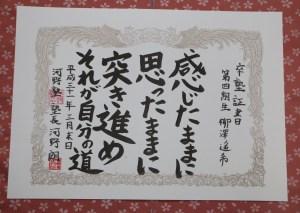 卒塾証書
第四期生 柳澤
感じたままに
思ったままに
突き進め
それが自分の道
平成二十一年三月吉日
河野塾塾長河野